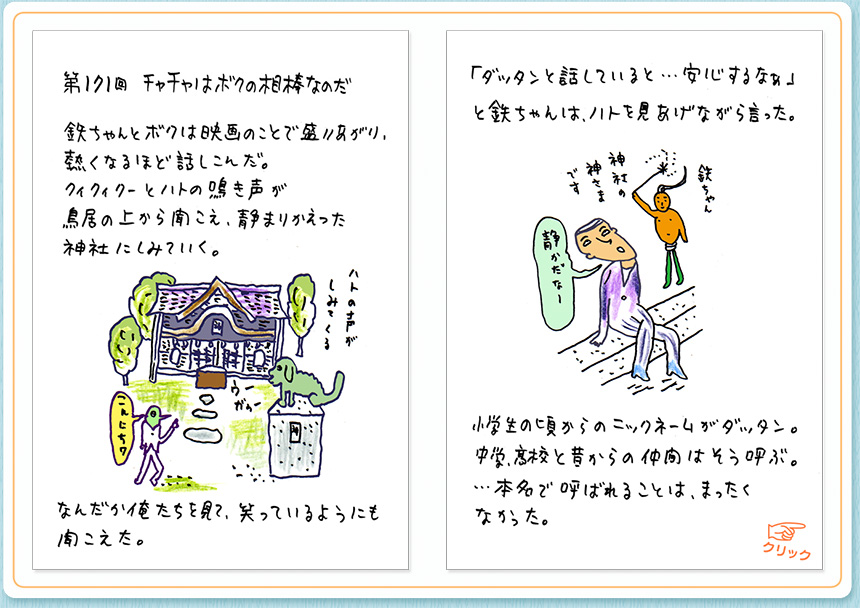 第171回 チャチャはボクの相棒なのだ
鉄ちゃんとボクは映画のことで盛りあがり、
熱くなるほど話しこんだ。
クィクィクーとハトの鳴き声が
鳥居の上から聞こえ、静まりかえった
神社にしみていく。
ハトの声が
しみてくる
ウー
ガゥー
こんにちワ
なんだか俺たちを見て、笑っているようにも
聞こえた。
「ダッタンと話していると…安心するなぁ」
と鉄ちゃんは、ハトを見あげながら言った。
鉄ちゃん
神社の
神さま
です
静かだなー
小学生の頃からのニックネームがダッタン。
中学、高校と昔からの仲間はそう呼ぶ。
…本名で呼ばれることは、まったく
なかった。
クリック